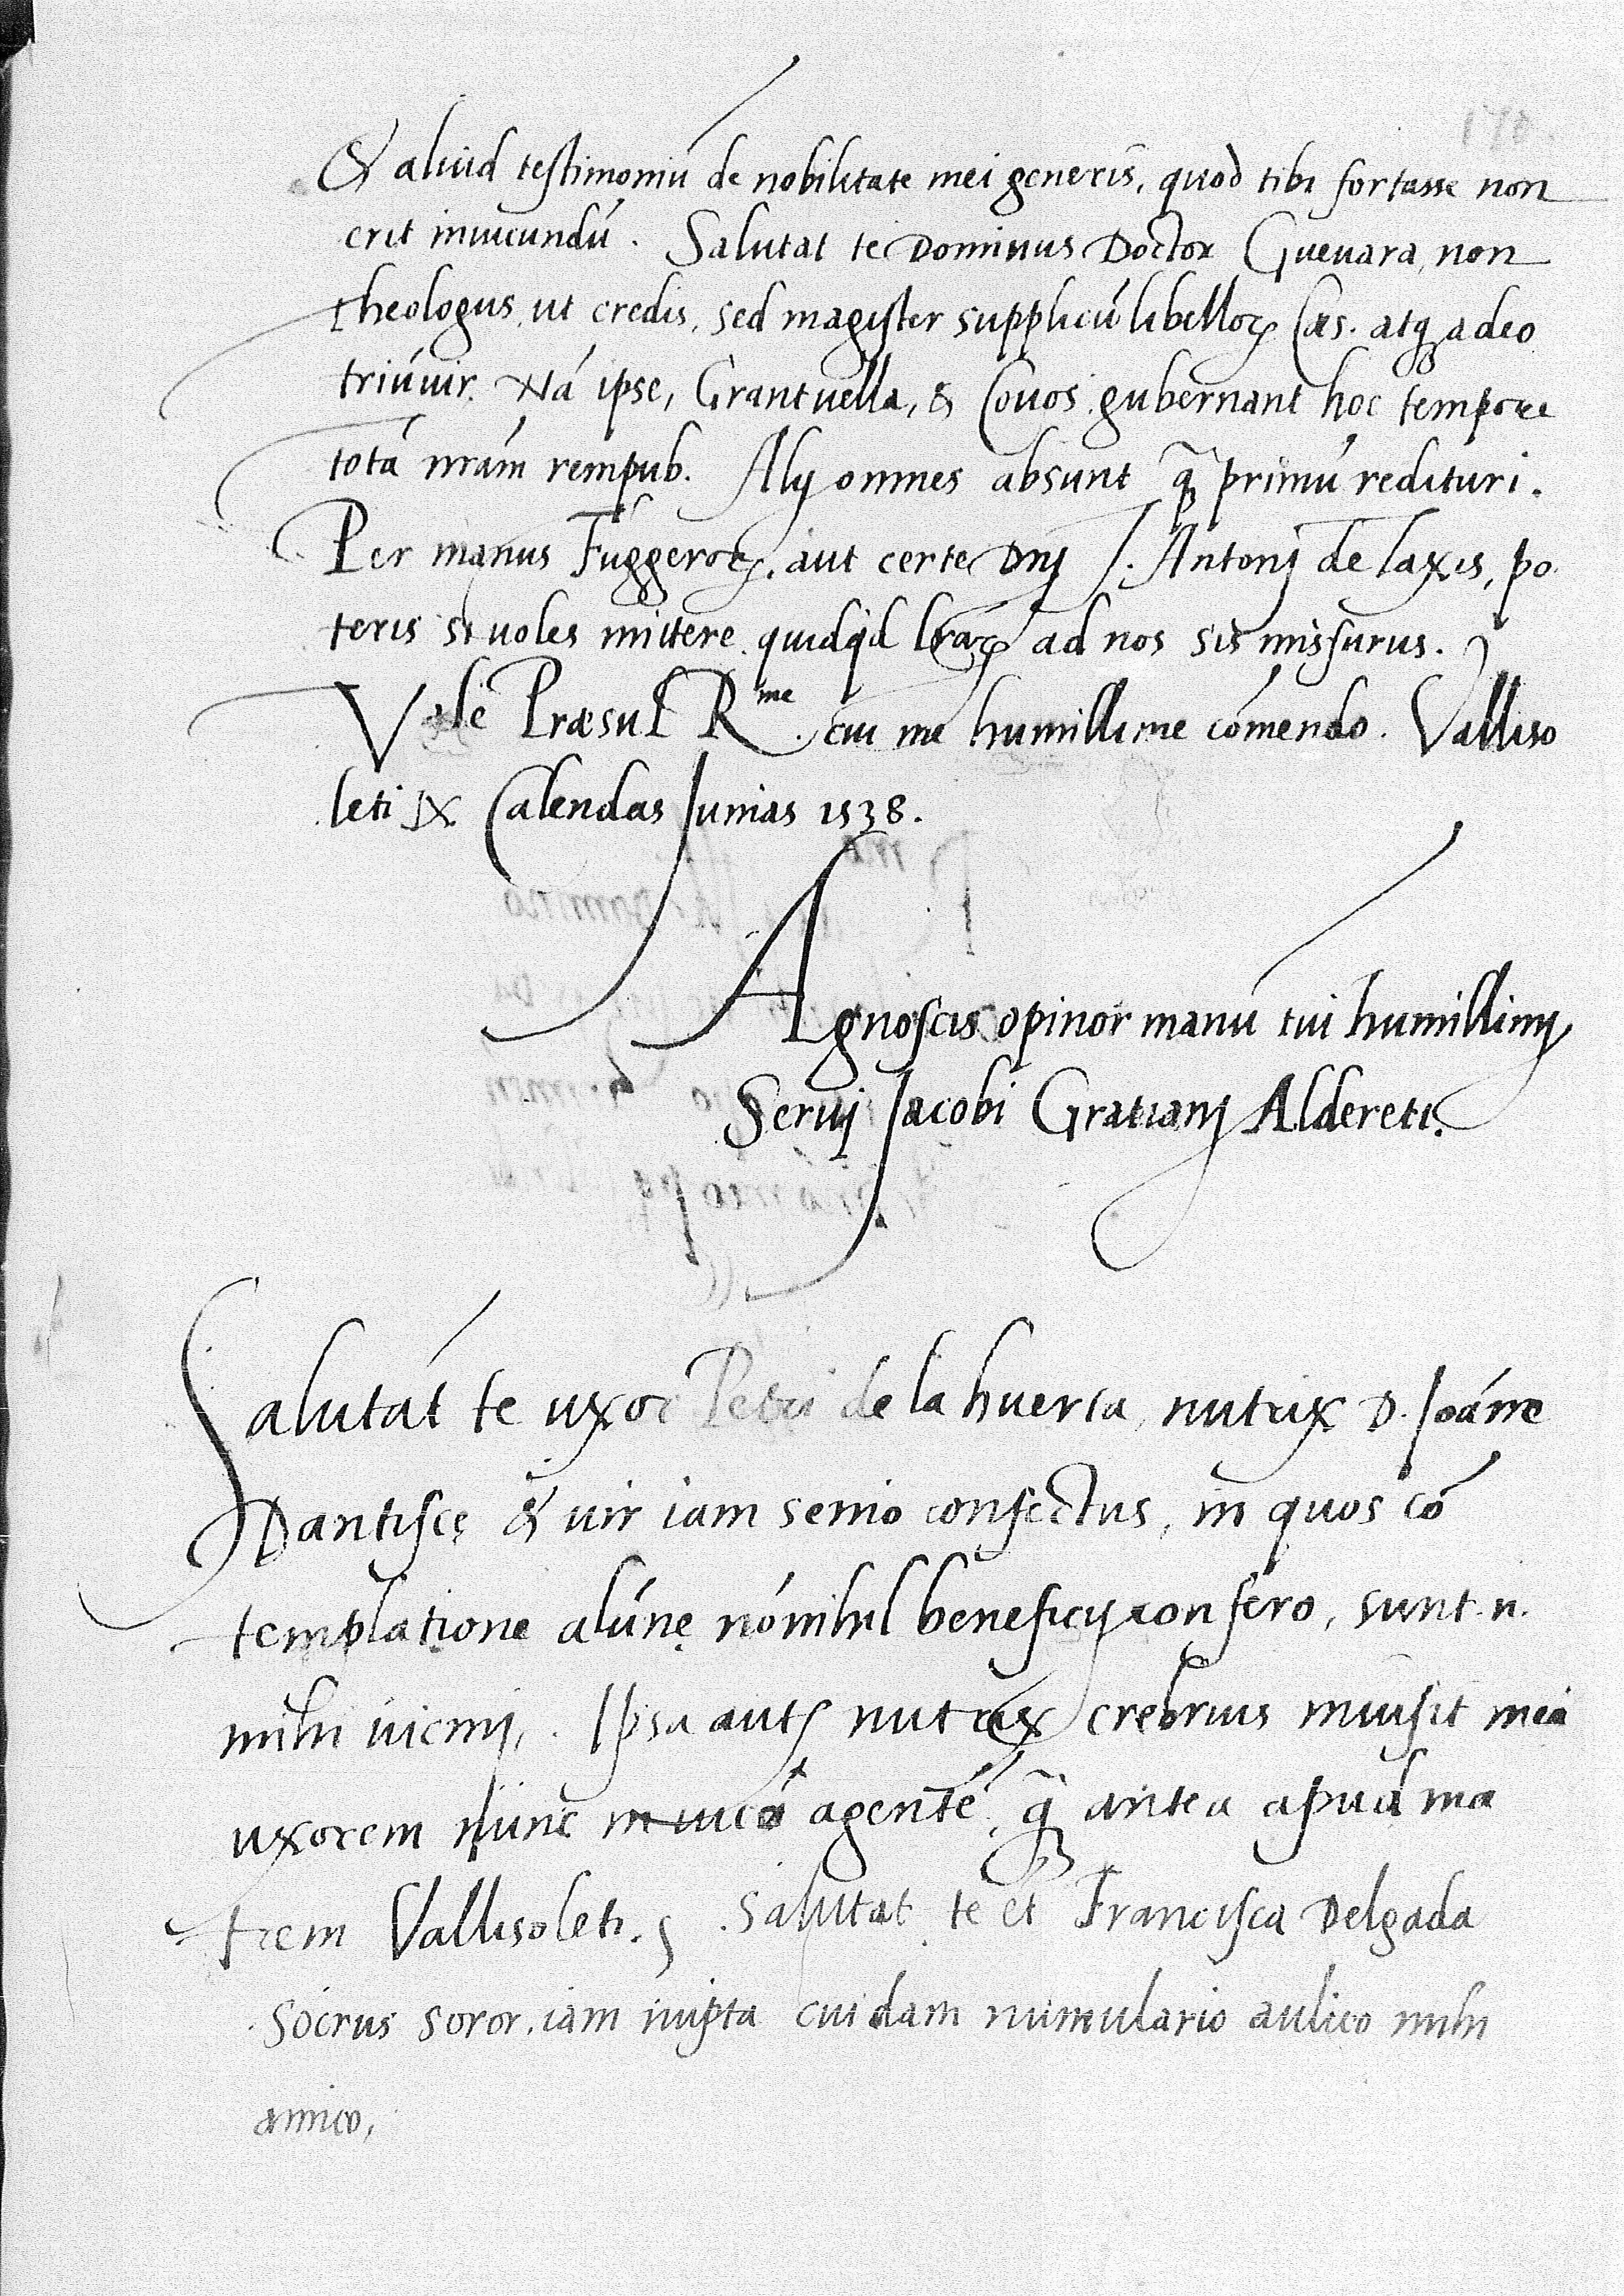 & aliud testimoniū de nobilitate mei generis, quod tibi fortasse non
erit iniucundū. Salutat te Dominus Doctor Gueuara, non
theologus, ut credis, sed magister supplicū libelloꝝ Cæs. atqꝫ adeo
triūuir. Nā ipse, Grantuella, & Couos gubernant hoc tempore
totā nr̄am rempub. Alij omnes absunt q̄ꝫ primū redituri.
Per manus Fuggeroꝝ, aut certe Dnj J. Antonij de Taxis, po
teris si uoles mittere quidqd lr̄aꝝ ad nos sis missurus.
Vale Præsul Rme. cui me humillime cōmendo. Valliso
leti IX Calendas Junias 1538.
Agnoscis opinor manū tui humillimj
Seruj Jacobi Gratianj Aldereti.
Salutāt te uxor Petri de la huerta, nutrix D. Joānę
Dantiscę & uir iam senio confectus, in quos cō
templatione alūnę nōnihil beneficij confero, sunt .n.
mihi uicinj. Ipsa autꝫ nutrix crebrius inuisit meā
uxorem nunc agentē, q̄ꝫ antea apud ma
trem Vallisoleti. Salutat te et Francisca Delgada
socrus soror, iam nupta cuidam nummulario aulico mihi
amico,